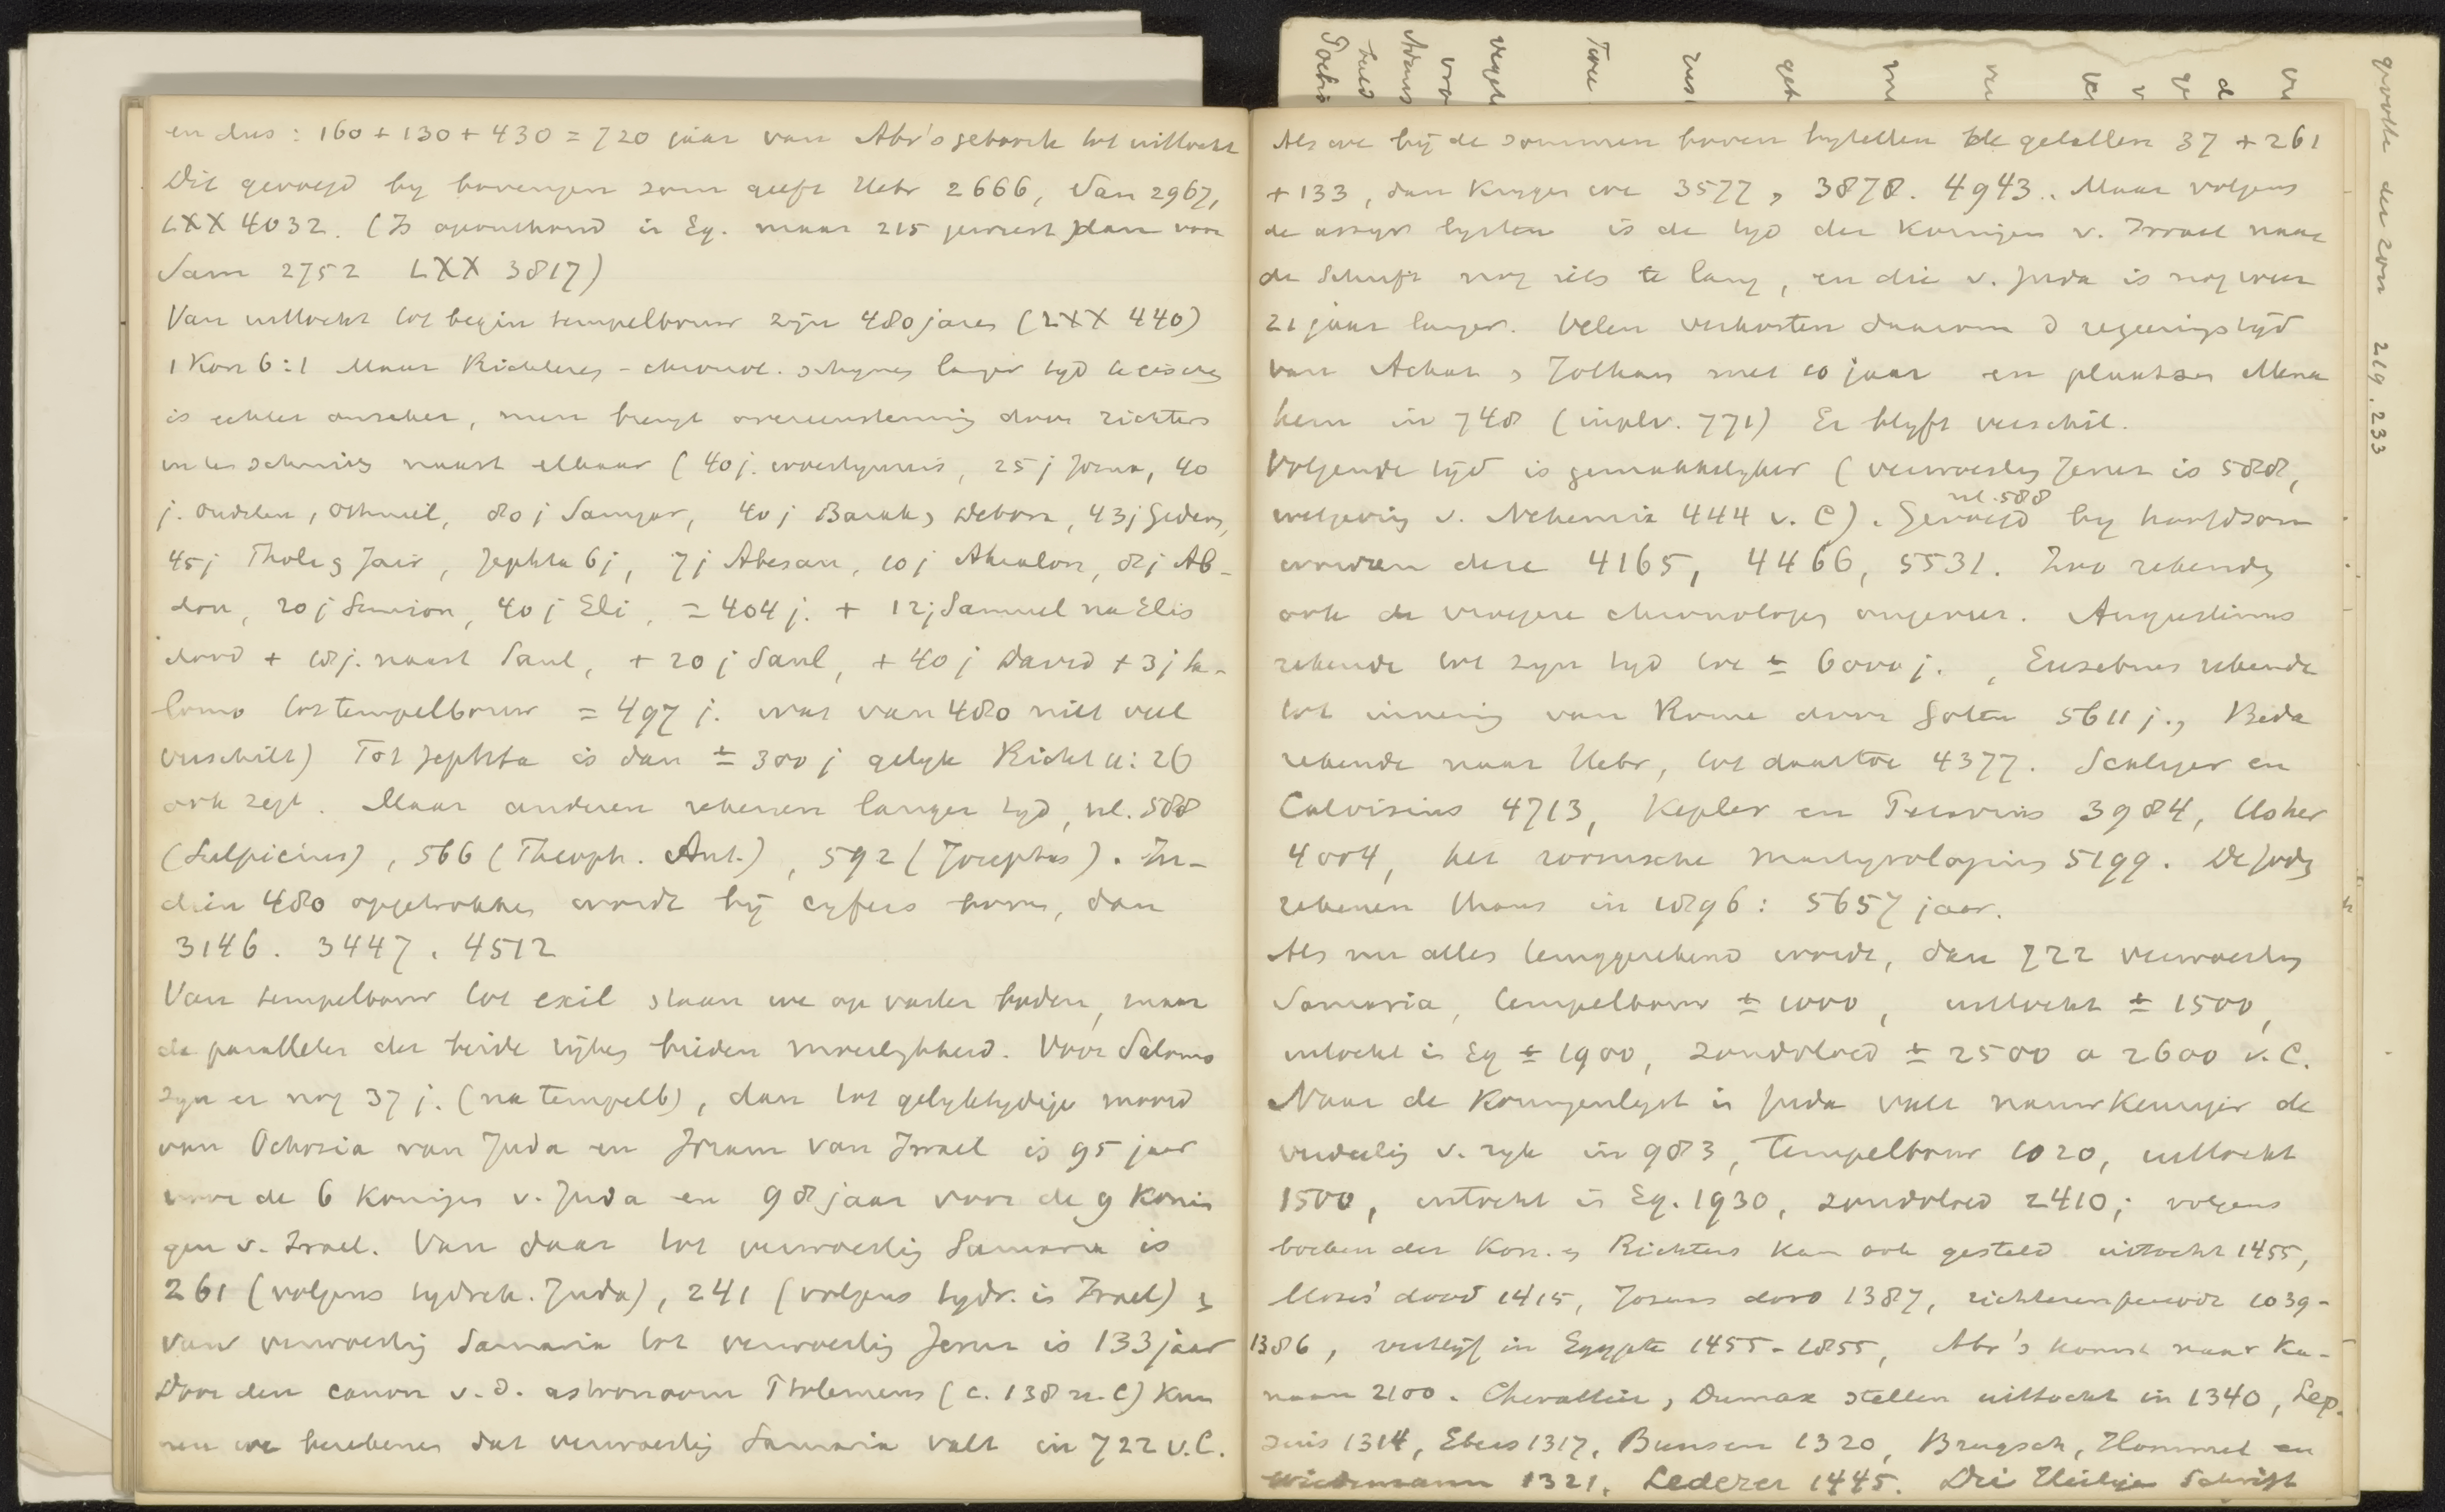 en dus: 160 + 130 + 430 = 720 jaar van Abr's geboorte tot uittocht
Dit gevoegd by bovengen som geeft Hebr 2666, Sam 2967,
LXX 4032. (Is oponthoud in Eg. maar 215 geweest dan voor
Sam 2752 LXX 3817)
Van uittocht tot begin tempelbouw zijn 480 jaren (LXX 440)
1 Kon 6:1 Maar Richteren-chronol. schynen langer tyd te eischen
is echter onzeker, men brengt overeenstemming door richters
naast elkaar (40 j. woestynreis, 25 j Jozua, 40
j. oudsten, Othniel, 80 j Samgar, 40 j Barak, Debora, 43 j Gideon,
45 j Thola en Jair, Jephta 6 j, 7 j Abesan, 10 j Ahialon, 8 j Ab-
don, 20 j Simson, 40 j Eli, = 404 j. + 12 j Samuel na Elis
dood + 18 j. naast Saul, + 20 j Saul, + 40 j David + 3 j Sa-
lomo tot tempelbouw = 497 j. wat van 480 niet veel
verschilt) Tot Jephta is dan ± 300 j gelyk Richt 11:26
ook zegt. Maar anderen rekenen langer tyd, nl. 588
(Sulpicius), 566 (Theoph. Ant.), 592 (Josephus). In-
dien 480 opgetrokken wordt bij cyfers boven, dan
3146. 3447. 4512
Van tempelbouw tot exil staan we op vasten bodem, maar
de parallelen der beide rijken bieden moeilykheid. Voor Salomo
zyn er nog 37 j. (na tempelb), dan tot gelyktydige moord
van Ochozia van Juda en Joram van Israel is 95 jaar
voor de 6 koningen v. Juda en 98 jaar voor de 9 konin
gen v. Israel. Van daar tot verwoesting Samaria is
261 (volgens tydrek. Juda), 241 (volgens tydr. in Israel) en
van verwoesting Samaria tot verwoesting Jerus is 133 jaar
Door den canon v. d. astronoom Ptolemeus (c. 138 n. C) kun
nen we berekenen dat verwoesting Samaria valt in 722 v. C.
Als we bij de sommen boven bytellen de getallen 37 + 261
+ 133, dan krygen we 3577, 3878. 4943. Maar volgens
de assyr lysten is de tyd der Koningen v. Israel naar
de Schrift nog iets te lang, en die v. Juda is nog weer
21 jaar langer. Velen verkorten daarom d regeeringstijd
van Achas en Jotham met 10 jaar en plaatsen Mena
hem in 748 (in pl v. 771) Er blyft verschil.
Volgende tijd is gemakkelyker (verwoesting Jerus is 588,
wetgeving v. Nehemia 444 v. C). Gevoegd by hoofdsom
nl. 588
worden deze 4165, 4466, 5531. Zoo rekenden
ook de vroegere chronologen ongeveer. Augustinus
rekende tot zyn tyd toe ± 6000 j., Eusebius rekende
tot inneming van Rome door Goten 5611 j., Beda
rekende naar Hebr, tot daartoe 4377. Scaliger en
Calvisius 4713, Kepler en Petavius 3984, Usher
4004, het roomsche martyrologium 5199. De Joden
rekenen thans in 1896: 5657 jaar.
Als nu alles teruggerekend wordt, dan 722 verwoesting
Samaria, tempelbouw ± 1000, uittocht ± 1500,
intocht in Eg ± 1900, zondvloed ± 2500 a 2600 v. C.
Naar de Koningenlyst in Juda valt nauwkeuriger de
verdeeling v. ryk in 983, Tempelbouw 1020, uittocht
1500, intocht in Eg. 1930, zondvloed 2410; volgens
boeken der Kon. en Richters kan ook gesteld uittocht 1455,
Mozes' dood 1415, Jozuas dood 1387, richterenperiode 1039-
1386, verblijf in Egypte 1455-1855, Abr's komst naar Ka-
naan 2100. Chevallier, Dumax stellen uittocht in 1340, Lep-
sius 1314, Ebers 1317, Bunsen 1320, Brugsch, Hommel en
Wiedemann 1321, Lederer 1445. Die Heilige Schrift
grootte der zon 219. 233